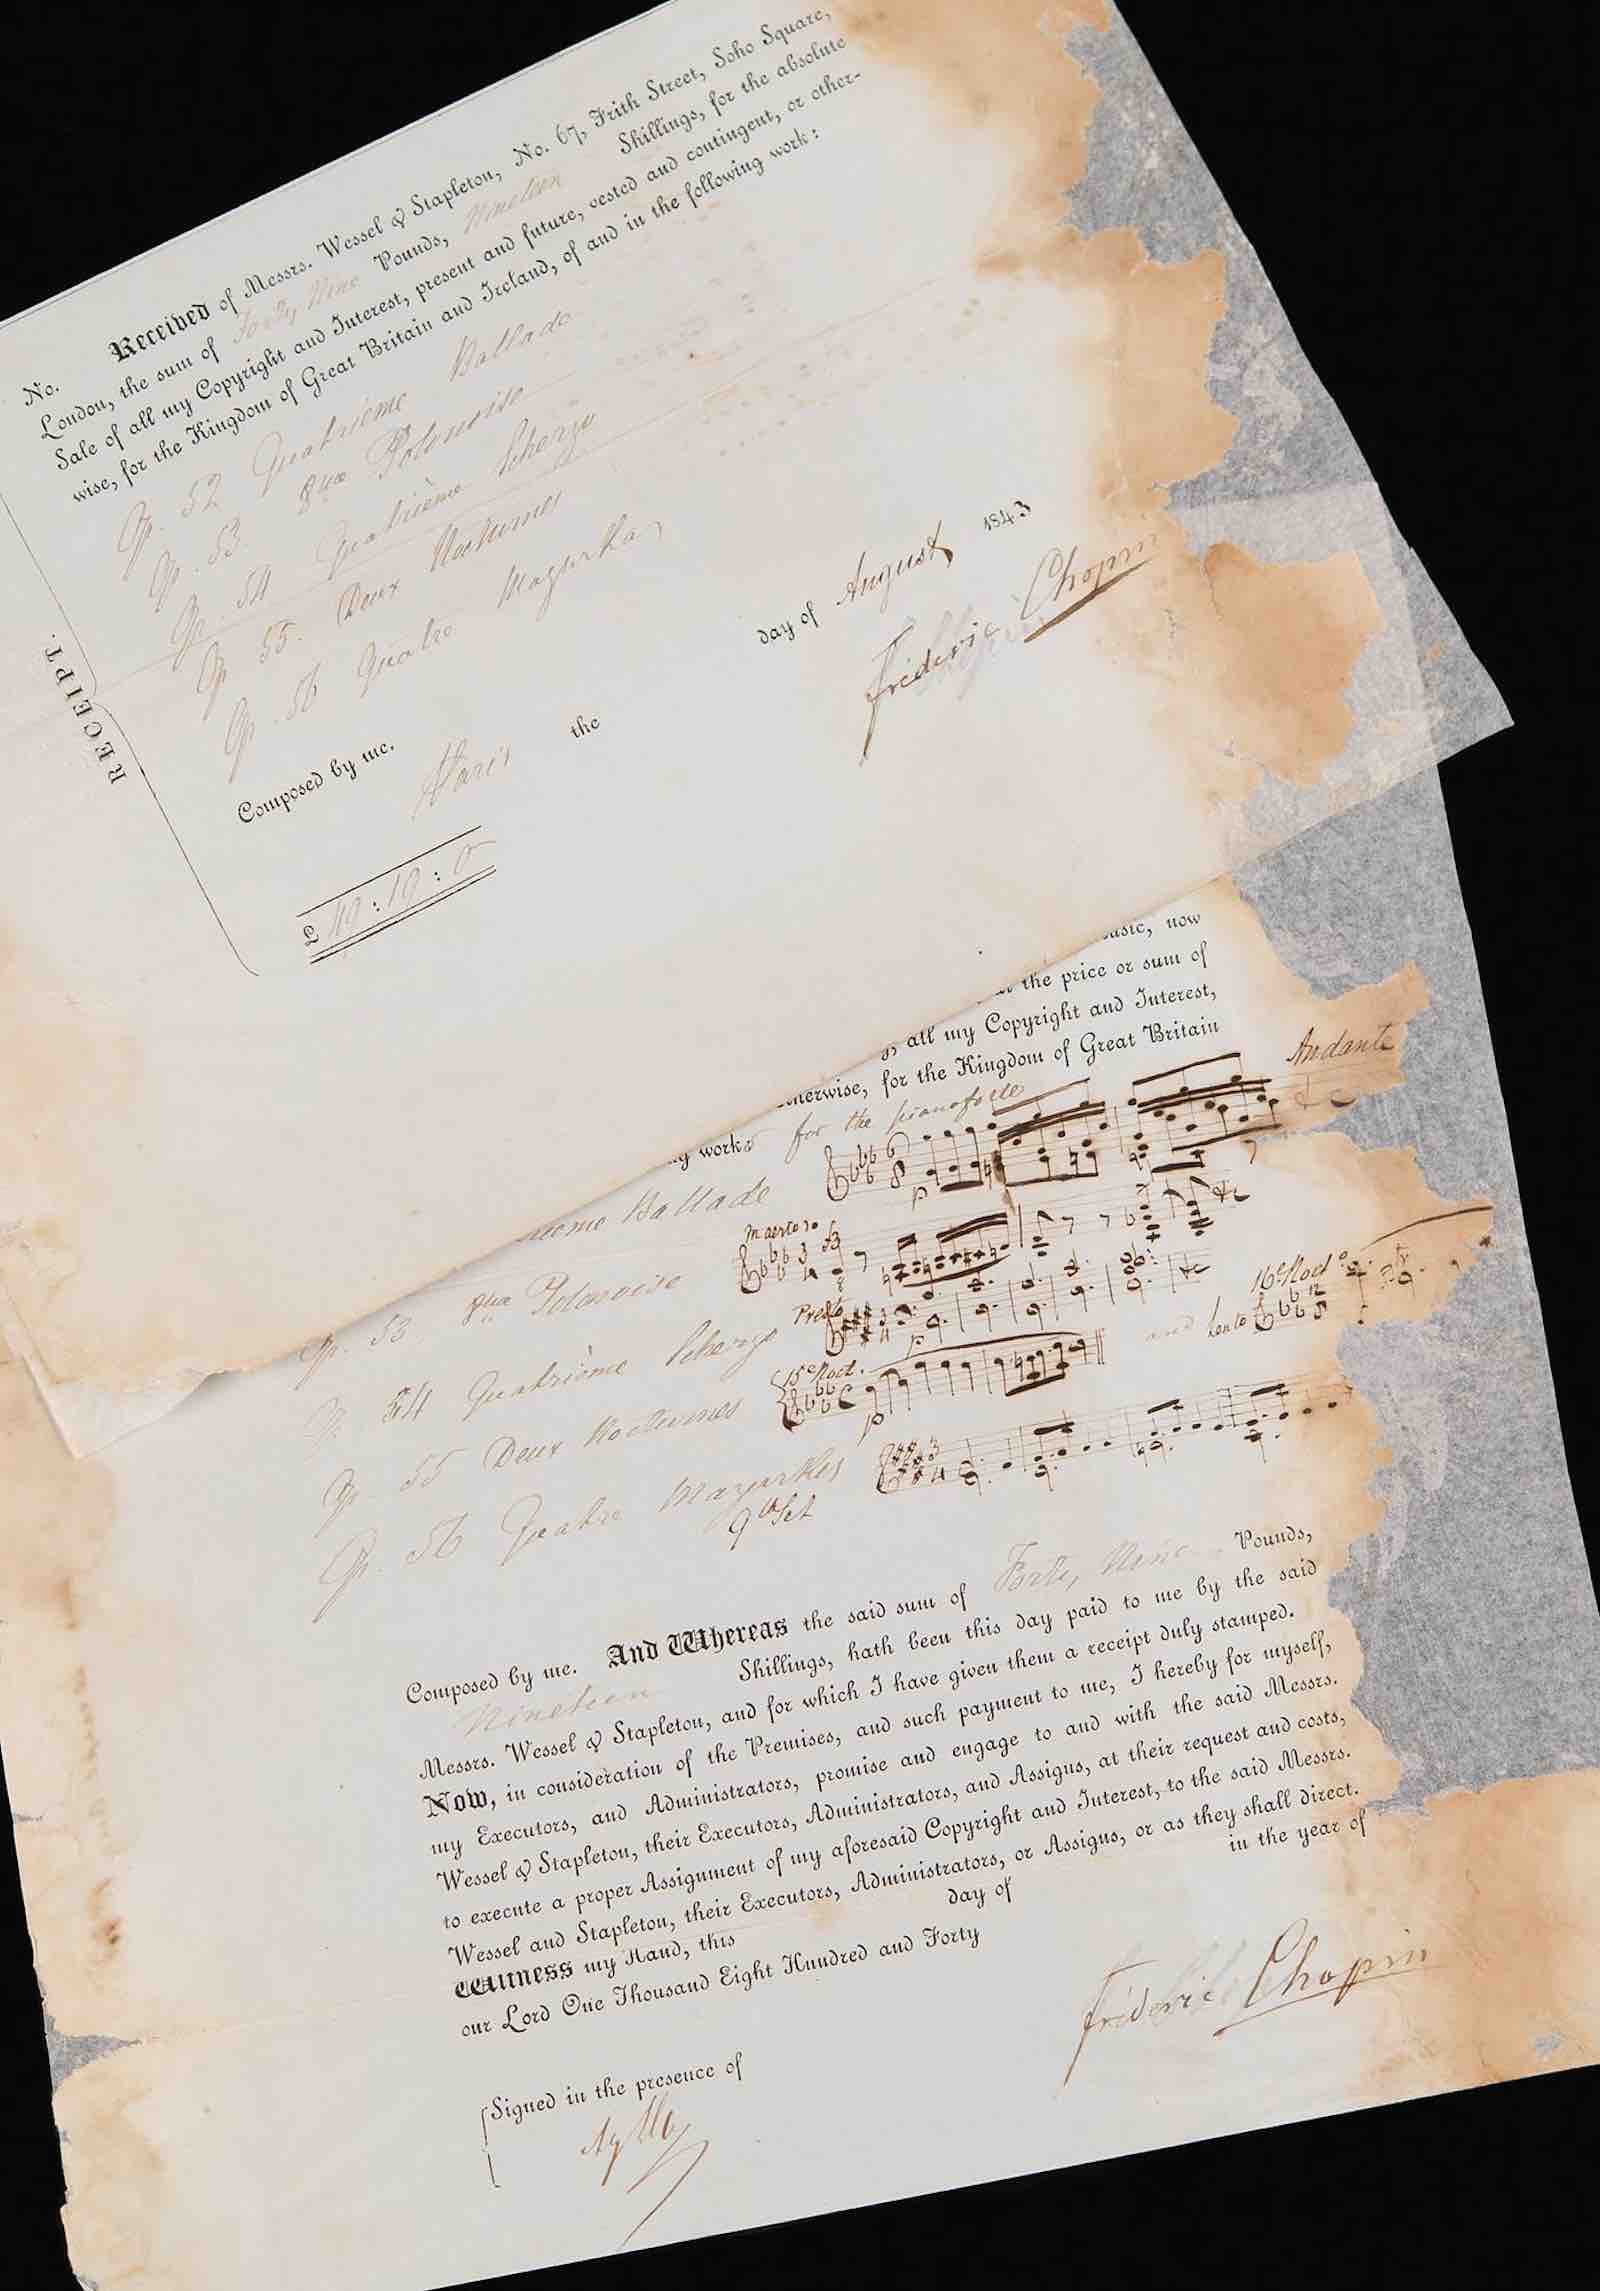 No. Received of Messrs. Wessel & Stapleton, No. 67, Frith Street, Soho Square,
London, the sum of Forty Nine Pounds, Nineteen Shillings, for the absolute
Sale of all my Copyright and Interest, present and future, vested and contingent, or other-
wise, for the Kingdom of Great Britain and Ireland, of and in the following work:
Op. 52 Quatrieme Ballade
Op. 53. 8me Polonoise
Op. 54 Quatrième Scherzo
Op 55. Deux Nocturnes
Op. 56 Quatre Mazurkas
RECEIPT.
Composed by me.
Paris the day of August 1843
Frédéric Chopin
£ 49 : 19 : 0
music, now
the price or sum of
all my Copyright and Interest,
otherwise, for the Kingdom of Great Britain
works for the pianoforte
Andante
Ballade
p
Maestoso
Op. 53 8me Polonoise
Presto
Op. 54 Quatrième Scherzo
p
15e Noct. and Lento 16e Noct
Op. 55 Deux Nocturnes
p
Op. 56 Quatre Mazurkas
9th Set
Composed by me. And Whereas the said sum of Forty Nine Pounds,
Nineteen Shillings, hath been this day paid to me by the said
Messrs. Wessel & Stapleton, and for which I have given them a receipt duly stamped.
Now, in consideration of the Premises, and such payment to me, I hereby for myself,
my Executors, and Administrators, promise and engage to and with the said Messrs.
Wessel & Stapleton, their Executors, Administrators, and Assigns, at their request and costs,
to execute a proper Assignment of my aforesaid Copyright and Interest, to the said Messrs.
Wessel and Stapleton, their Executors, Administrators, or Assigns, or as they shall direct.
Witness my Hand, this day of in the year of
our Lord One Thousand Eight Hundred and Forty
Frédéric Chopin
Signed in the presence of